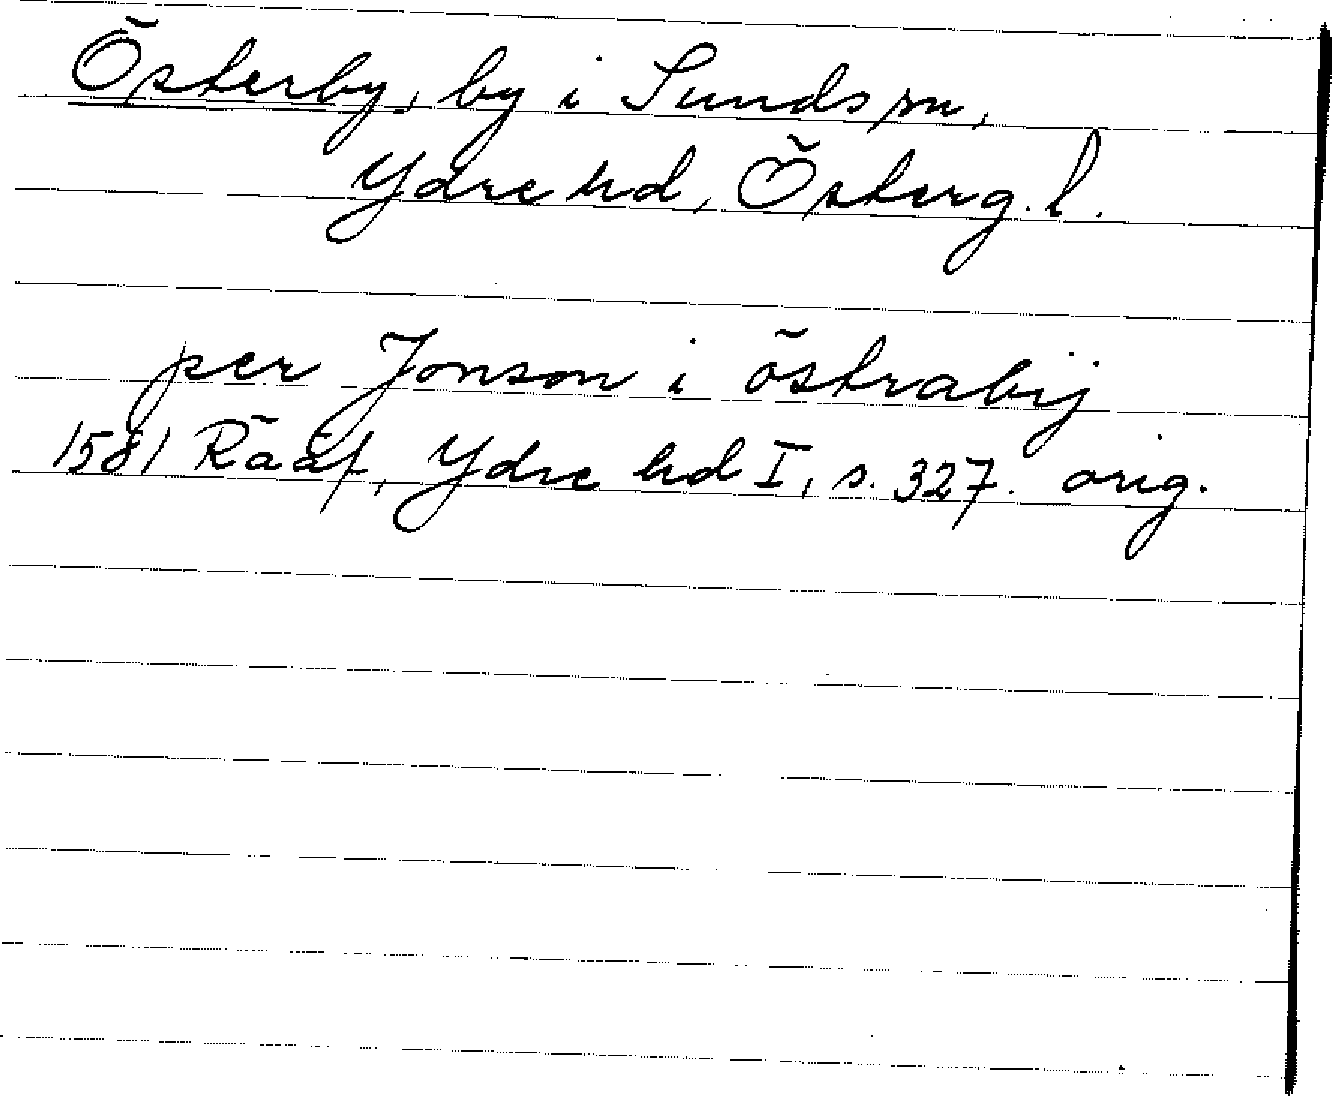 Österby, by i Sunds sn,
Ydre hd, Österg. l.
per Jonson i östrabij
1581 Rääf, Ydre hd I, s. 327. orig.